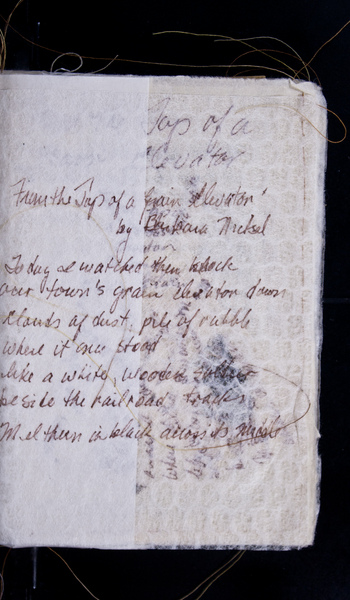 Top of a
Elevator
From the Top of a Grain Elevator'
by Barbara Nickel
Today I watched them knock
our town's grain elevator down
clouds of dust, pile of rubble
where it once stood
like a white, wooden
beside the railroad tracks
in black across its middle